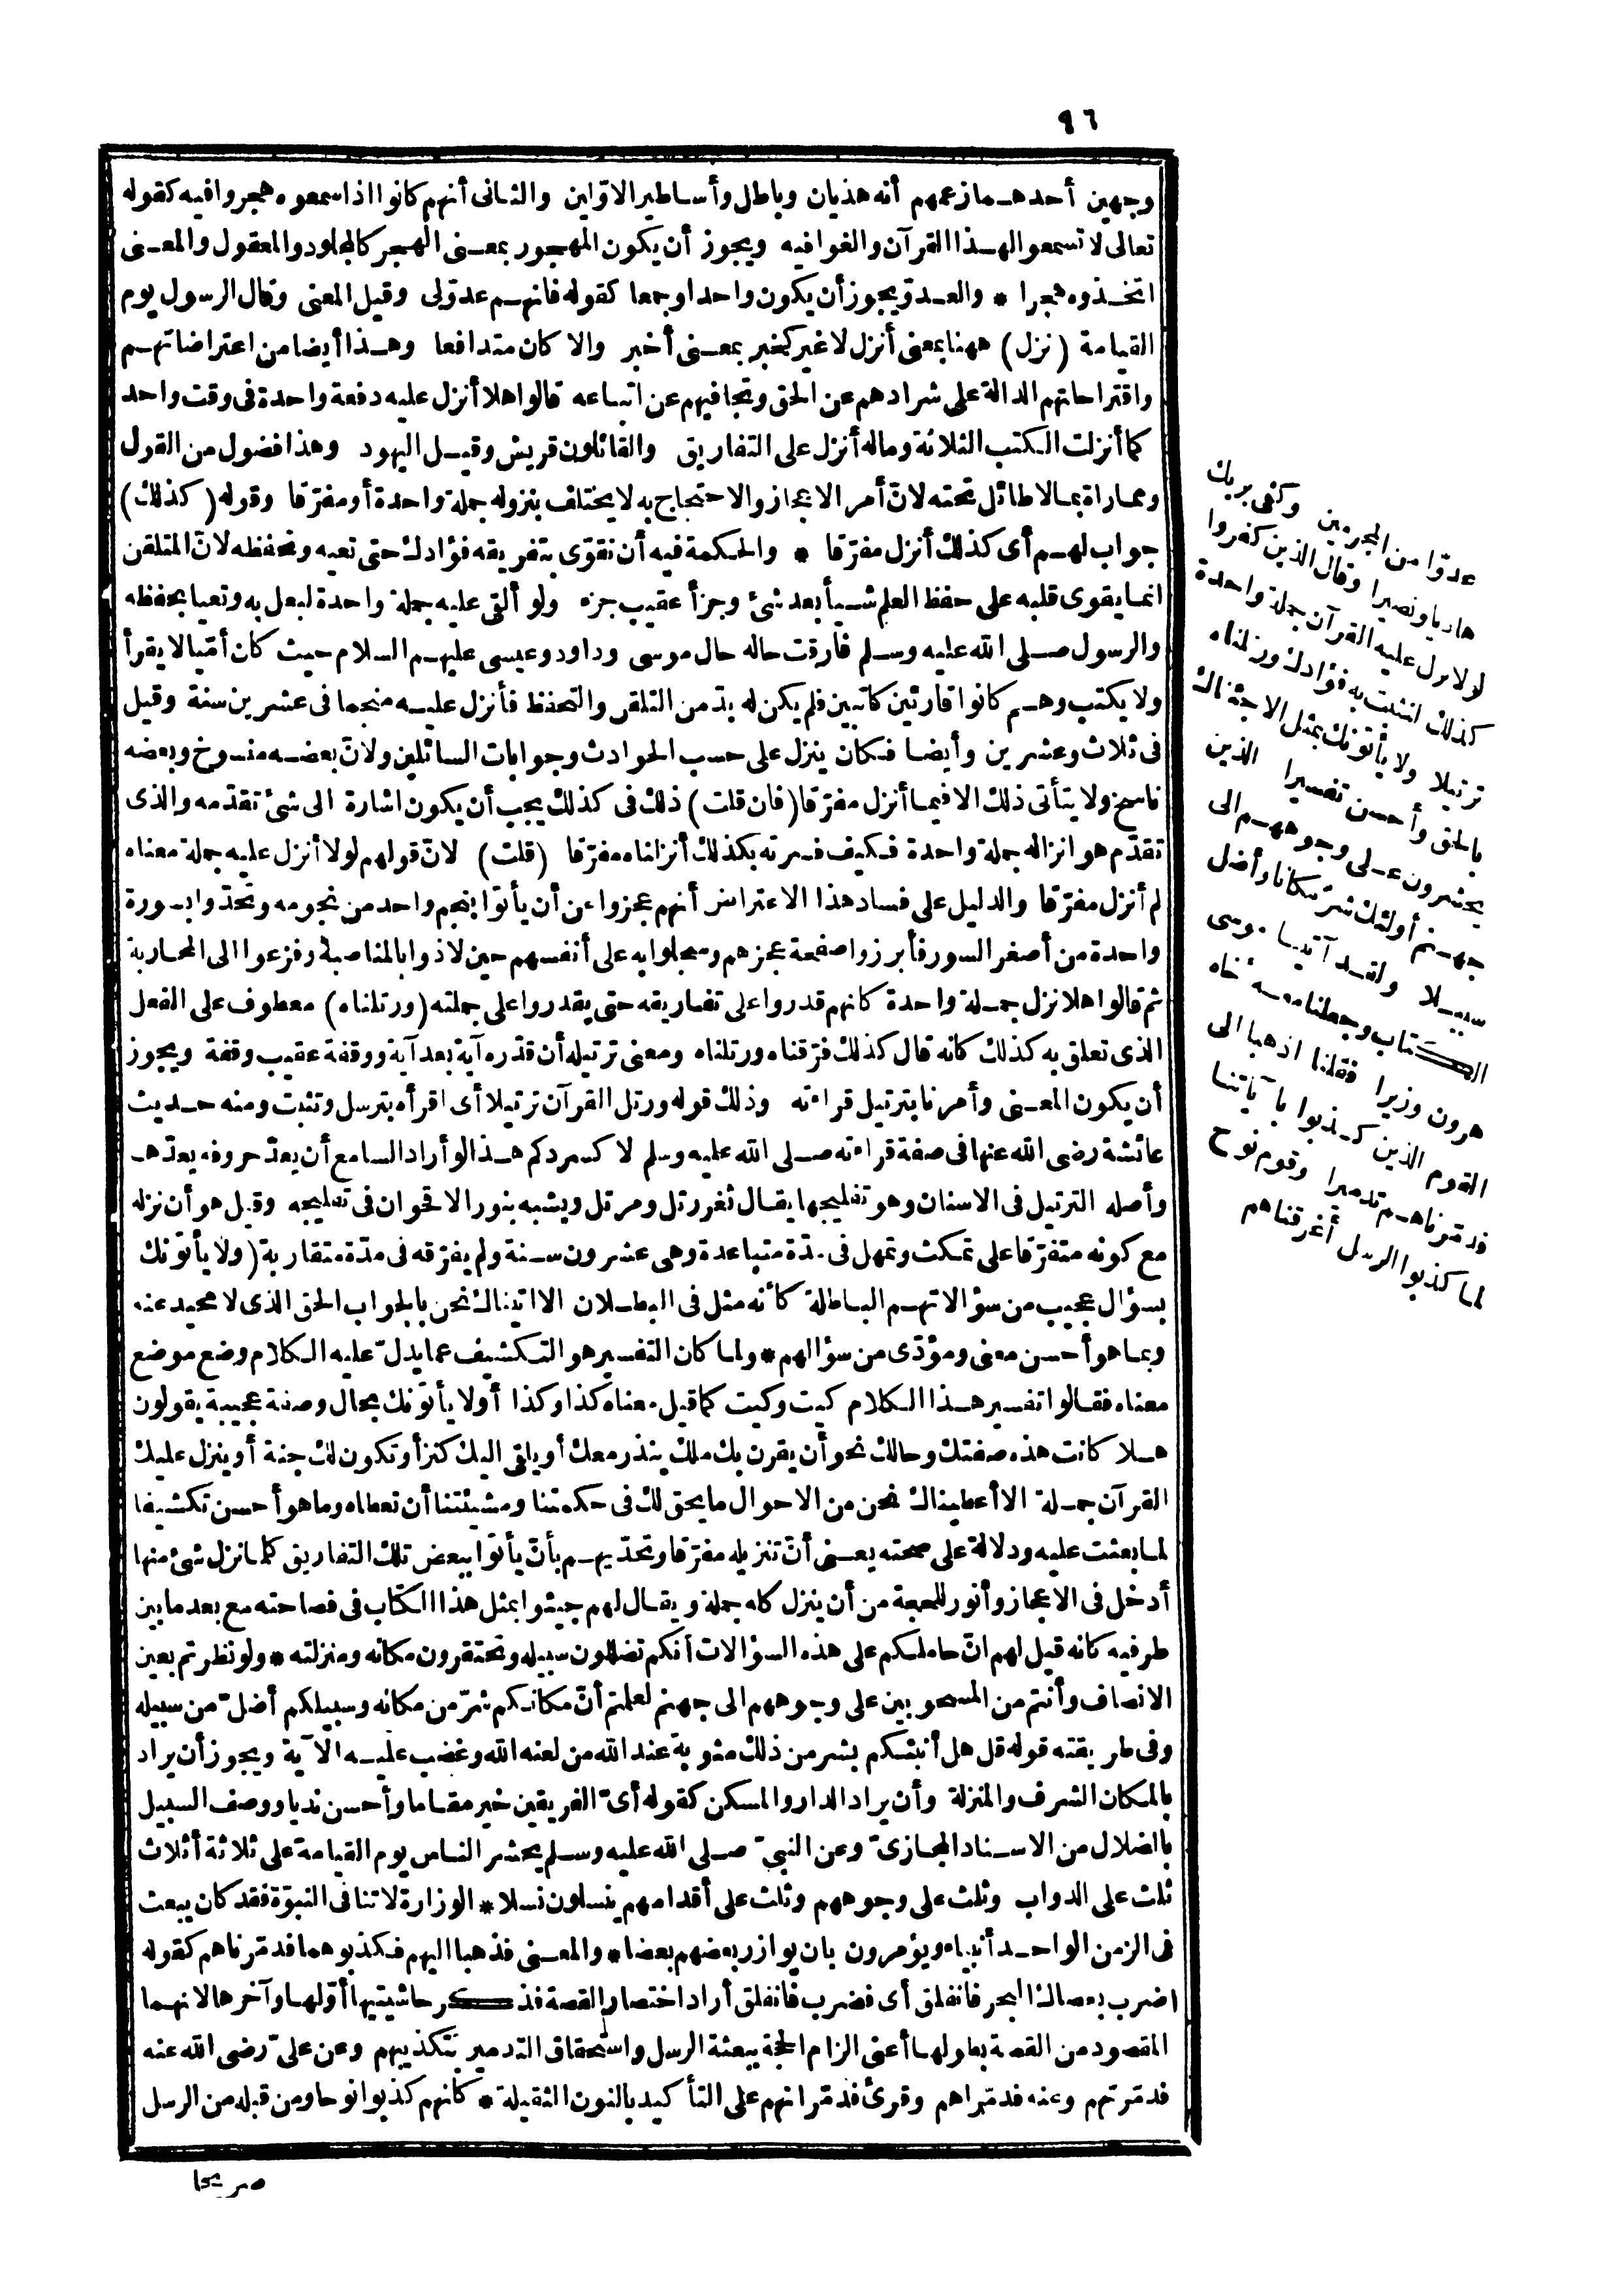 ٩٦
وجهين أحدهما زعمهم أنه هذيان وباطل وأساطير الاوّلين والثانى أنهم كانوا اذا سمعوه هجروا فيه كقوله
تعالى لا تسمعوا لهذا القرآن والغوا فيه ويجوز أن يكون المهجور بمعنى الهجر كالمجلود والمعقول والمعنى
اتخذوه هجرا * والعدوّ يجوز أن يكون واحدا وجمعا كقوله فانهم عدوّ لى وقيل المعنى وقال الرسول يوم
القيامة (نزل) ههنا بمعنى أنزل لا غير كخبر بمعنى أخبر والا كان متدافعا وهذا أيضا من اعتراضاتهم
واقتراحاتهم الدالة على شرادهم عن الحق وتجافيهم عن اتباعه قالوا هلا أنزل عليه دفعة واحدة فى وقت واحد
كما أنزلت الكتب الثلاثة وماله أنزل على التفاريق والقائلون قريش وقيل اليهود وهذا فضول من القول
ومماراة بما لا طائل تحته لانّ أمر الاعجاز والاحتجاج به لا يختلف بنزوله جملة واحدة أو مفرّقا وقوله (كذلك)
جواب لهم أى كذلك أنزل مفرّقا * والحكمة فيه أن نقوّى بتفريقه فؤادك حتى تعيه وتحفظه لانّ المتلقن
انما يقوى قلبه على حفظ العلم شيأ بعد شئ وجزأ عقيب جزء ولو ألقى عليه جملة واحدة لبعل به وتعيا بحفظه
والرسول صلى الله عليه وسلم فارقت حاله حال موسى وداود وعيسى عليهم السلام حيث كان أمّيا لا يقرأ
ولا يكتب وهم كانوا قارئين كاتبين فلم يكن له بدّ من التلقن والتحفظ فأنزل عليه منجما فى عشرين سنة وقيل
فى ثلاث وعشرين وأيضا فكان ينزل على حسب الحوادث وجوابات السائلين ولانّ بعضه منسوخ وبعضه
ناسخ ولا يتأتى ذلك الا فيما أنزل مفرّقا (فان قلت) ذلك فى كذلك يجب أن يكون اشارة الى شئ تقدّمه والذى
تقدّم هو انزاله جملة واحدة فكيف فسرته بكذلك أنزلناه مفرّقا (قلت) لانّ قولهم لولا أنزل عليه جملة معناه
لم أنزل مفرّقا والدليل على فساد هذا الاعتراض أنهم عجزوا عن أن يأتوا بنجم واحد من نجومه وتحدّوا بسورة
واحدة من أصغر السور فأبرزوا صفحة عجزهم وسجلوا به على أنفسهم حين لاذوا بالمناصبة وفزعوا الى المحاربة
ثم قالوا هلا نزل جملة واحدة كانهم قدروا على تفاريقه حتى يقدروا على جملته (ورتلناه) معطوف على الفعل
الذى تعلق به كذلك كانه قال كذلك فرّقناه ورتلناه ومعنى ترتيله أن قدّره آية بعد آية ووقفة عقيب وقفة ويجوز
أن يكون المعنى وأمرنا بترتيل قراءته وذلك قوله ورتل القرآن ترتيلا أى اقرأه بترسل وتثبت ومنه حديث
عائشة رضى الله عنها فى صفة قراءته صلى الله عليه وسلم لا كسردكم هذا لو أراد السامع أن يعدّ حروفه يعدّها
وأصله الترتيل فى الاسنان وهو تفليجها يقال ثغر رتل ومرتل ويشبه بنور الاقحوان فى تفليجه وقيل هو أن نزله
مع كونه متفرّقا على تمكث وتمهل فى مدّة متباعدة وهى عشرون سنة ولم يفرّقه فى مدّة متقاربة (ولا يأتونك)
بسؤال عجيب من سؤالاتهم الباطلة كأنه مثل فى البطلان الا اتيناك نحن بالجواب الحق الذى لا محيد عنه
وبما هو أحسن معنى ومؤدّى من سؤالهم * ولما كان التفسير هو التكشيف عما يدلّ عليه الكلام وضع موضع
معناه فقالوا تفسير هذا الكلام كيت وكيت كما قيل معناه كذا وكذا أو لا يأتونك بحال وصفة عجيبة يقولون
هلا كانت هذه صفتك وحالك نحو أن يقرن بك ملك ينذر معك أو يلقى اليك كنز أو تكون لك جنة أو ينزل عليك
القرآن جملة الا أعطيناك نحن من الاحوال ما يحق لك فى حكمتنا ومشيئتنا أن تعطاه وما هو أحسن تكشيفا
لما بعثت عليه ودلالة على صحته يعنى أنّ تنزيله مفرّقا وتحدّيهم بأن يأتوا ببعض تلك التفاريق كلما نزل شئ منها
أدخل فى الاعجاز وأنور للحجة من أن ينزل كله جملة ويقال لهم جيئوا بمثل هذا الكتاب فى فصاحته مع بعد ما بين
طرفيه كانه قيل لهم انّ حاملكم على هذه السؤالات أنكم تضللون سبيله وتحتقرون مكانه ومنزلته * ولو نظرتم بعين
الانصاف وأنتم من المسحوبين على وجوههم الى جهنم لعلمتم أنّ مكانكم شرّ من مكانه وسبيلكم أضلّ من سبيله
وفى طريقته قوله قل هل أنبئكم بشر من ذلك مثوبة عند الله من لعنه الله وغضب عليه الآية ويجوز أن يراد
بالمكان الشرف والمنزلة وأن يراد الدار والمسكن كقوله أىّ الفريقين خير مقاما وأحسن نديا ووصف السبيل
بالضلال من الاسناد المجازىّ وعن النبىّ صلى الله عليه وسلم يحشر الناس يوم القيامة على ثلاثة أثلاث
ثلث على الدواب وثلث على وجوههم وثلث على أقدامهم ينسلون نسلا * الوزارة لا تنافى النبوّة فقد كان يبعث
فى الزمن الواحد أنبياء ويؤمرون بان يوازر بعضهم بعضا * والمعنى فذهبا اليهم فكذبوهما فدمّرناهم كقوله
اضرب بعصاك البحر فانفلق أى فضرب فانفلق أراد اختصار القصة فذكر حاشيتيها أوّلها وآخرها لانهما
المقصود من القصة بطولها أعنى الزام الحجة ببعثة الرسل واستحقاق التدمير بتكذيبهم وعن علىّ رضى الله عنه
فدمّرتهم وعنه فدمّراهم وقرئ فدمّرانهم على التأكيد بالنون الثقيلة * كأنهم كذبوا نوحا ومن قبله من الرسل
صريحا
عدوّا من المجرمين وكفى بربك
هاديا ونصيرا وقال الذين كفروا
لولا نزل عليه القرآن جملة واحدة
كذلك لنثبت به فؤادك ورتلناه
ترتيلا ولا يأتونك بمثل الا جئناك
بالحق وأحسن تفسيرا الذين
يحشرون على وجوههم الى
جهنم أولئك شرّ مكانا وأضل
سبيلا ولقد آتينا موسى
الكتاب وجعلنا معه أخاه
هرون وزيرا فقلنا اذهبا الى
القوم الذين كذبوا بآياتنا
فدمّرناهم تدميرا وقوم نوح
لما كذبوا الرسل أغرقناهم